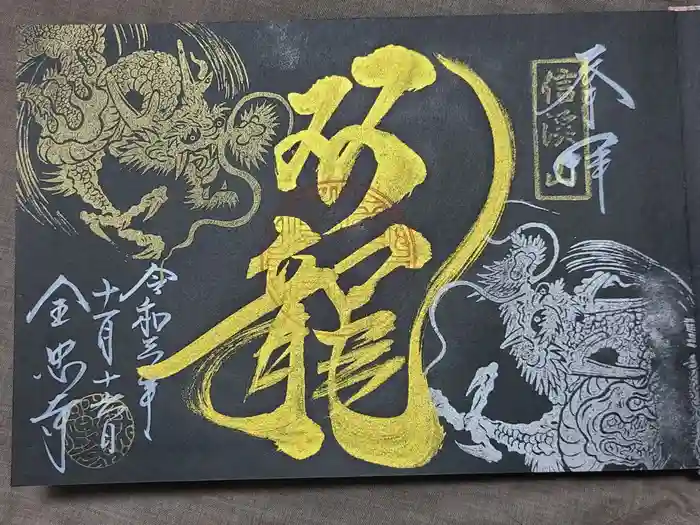 奉拝
信渓山
双龍
令和三年
十一月十六日
全忠寺